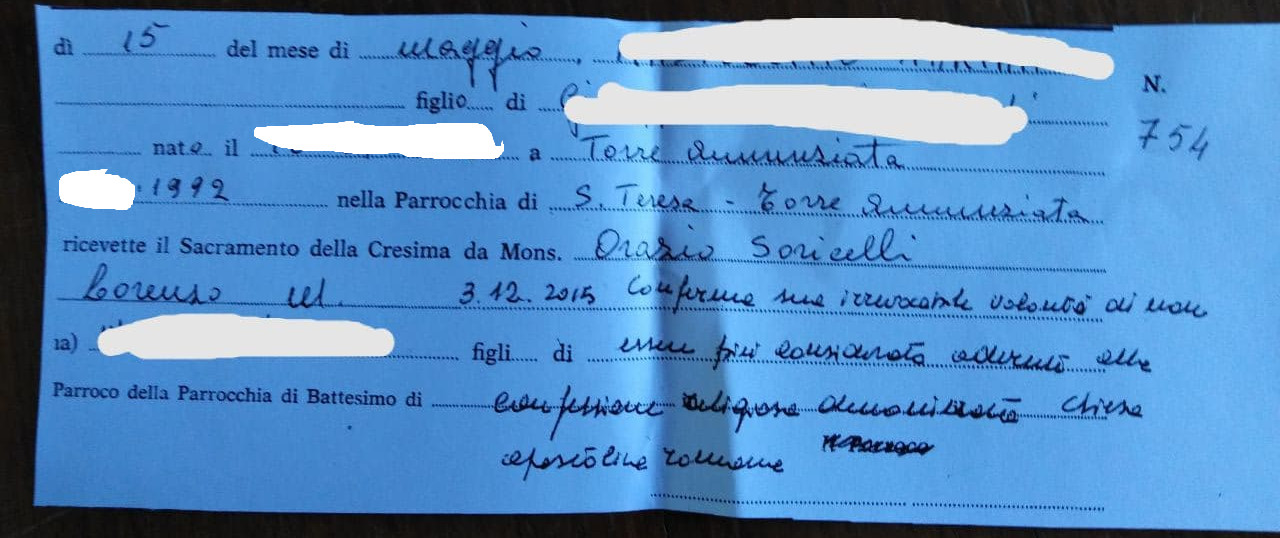 dì 15 del mese di maggio,
figlio di
N. 754
nato il a Torre Annunziata
1992 nella Parrocchia di S. Teresa - Torre Annunziata
ricevette il Sacramento della Cresima da Mons. Orazio Soricelli
3.12.2015 Conferma sua irrevocabile volontà di non
ia) figli di essere più considerata aderente alla
Parroco della Parrocchia di Battesimo di confessione religiosa denominata chiesa
apostolica romana